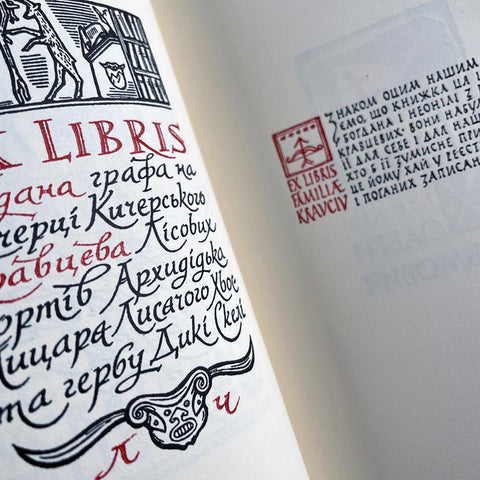 X LIBRIS
дана графа на
черці Кичерського
равцева Лісових
ортів Архидідька
лицаря Лисячого
та гербу Дикі Скелі
Л Ч
ЗНАКОМ ОЦИМ НАШИМ
ЄМО, ЩО КНИЖКА ЦЯ
БОГДАНА І НЕОНІЛІ З
РАВЦЕВИХ. ВОНИ НАБУ
ЇЇ ДЛЯ СЕБЕ І ДЛЯ НАЩ
ХТО Б ЇЇ ЗУМИСНЕ ПРИ
ЦЕ ЙОМУ ХАЙ У РЕЄСТ
І ПОГАНИХ ЗАПИСАН
EX LIBRIS
FAMILIÆ
KRAVCIV